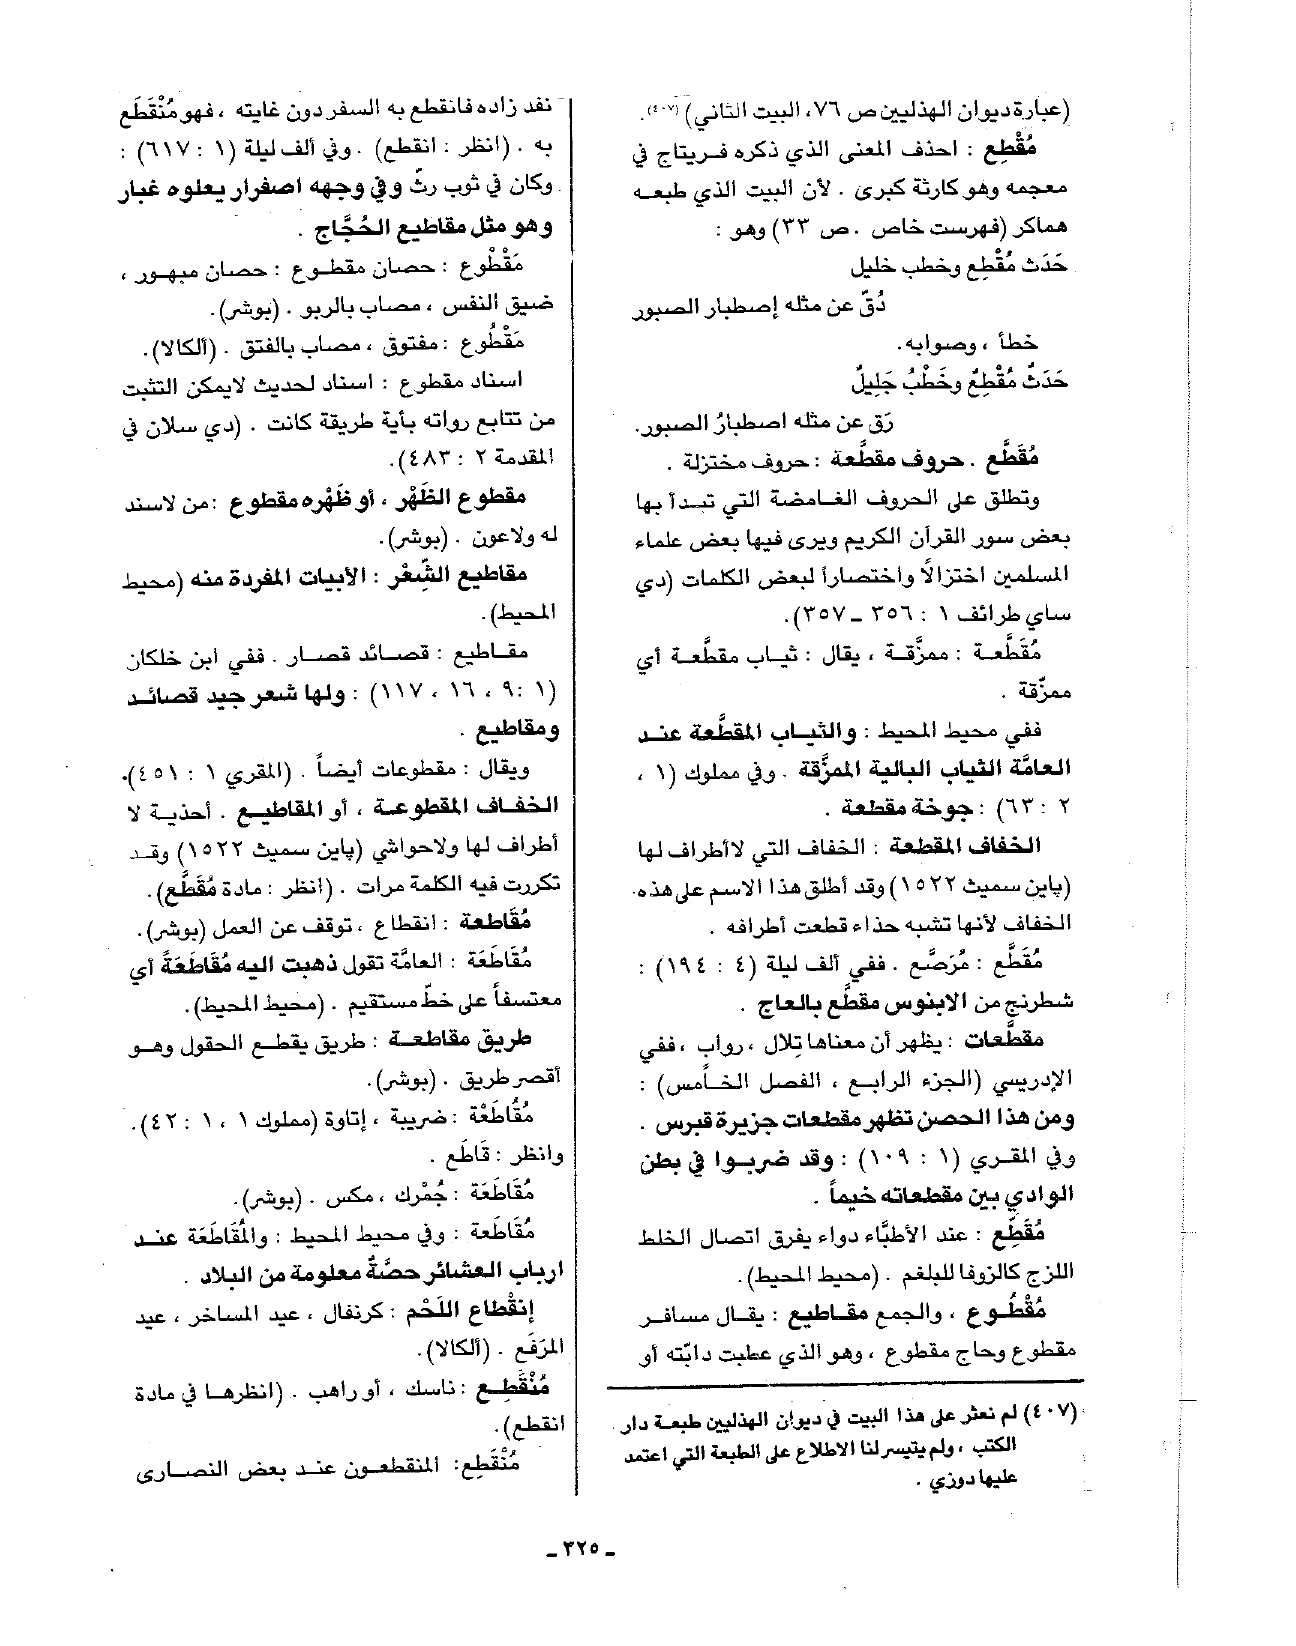 (عبارة ديوان الهذليين ص ٧٦، البيت الثاني) (٤٠٧).
مُقْطِع : احذف المعنى الذي ذكره فريتاج في
معجمه وهو كارثة كبرى . لأن البيت الذي طبعه
هماكر (فهرست خاص . ص ٣٣) وهو :
حَدَث مُقْطِع وخطب خليل
دُقّ عن مثله إصطبار الصبور
خطأ ، وصوابه.
حَدَثٌ مُقْطِعٌ وخَطْبٌ جَلِيلٌ
رَق عن مثله اصطبارُ الصبور.
مُقَطَّع . حروف مقطَّعة : حروف مختزلة .
وتطلق على الحروف الغامضة التي تبدآ بها
بعض سور القرآن الكريم ويرى فيها بعض علماء
المسلمين اختزالاً واختصاراً لبعض الكلمات (دي
ساي طرائف ١ : ٣٥٦ ـ ٣٥٧).
مُقَطَّعة : ممزَّقة ، يقال : ثياب مقطَّعة أي
ممزّقة .
ففي محيط المحيط : والثياب المقطَّعة عند
العامَّة الثياب البالية الممزَّقة . وفي مملوك (١ ،
٢ : ٦٣) : جوخة مقطعة .
الخفاف المقطعة : الخفاف التي لاأطراف لها
(پاين سميث ١٥٢٢) وقد أطلق هذا الاسم على هذه
الخفاف لأنها تشبه حذاء قطعت أطرافه .
مُقَطَّع : مُرَصَّع . ففي ألف ليلة (٤ : ١٩٤) :
شطرنج من الابنوس مقطَّع بالعاج .
مقطَّعات : يظهر أن معناها تِلال ، رواب ، ففي
الإدريسي (الجزء الرابع ، الفصل الخأمس) :
ومن هذا الحصن تظهر مقطعات جزيرة قبرس .
وفي المقري (١ : ١٠٩) : وقد ضربوا في بطن
الوادي بين مقطعاته خيماً .
مُقَطِّع : عند الأطبَّاء دواء يفرق اتصال الخلط
اللزج كالزوفا للبلغم . (محيط المحيط).
مُقْطُوع ، والجمع مقاطيع : يقال مسافر
مقطوع وحاج مقطوع ، وهو الذي عطبت دابّته أو
(٤٠٧) لم نعثر على هذا البيت في ديوان الهذليين طبعة دار
الكتب ، ولم يتيسر لنا الاطلاع على الطبعة التي اعتمد
عليها دوزي .
نفد زاده فانقطع به السفر دون غايته ، فهو مُنْقَطَع
به . (انظر : انقطع) . وفي ألف ليلة (١ : ٦١٧) :
وكان في ثوب رثّ وفي وجهه اصفرار يعلوه غبار
وهو مثل مقاطيع الحُجَّاج .
مَقْطُوع : حصان مقطوع : حصان مبهور ،
ضيق النفس ، مصاب بالربو . (بوشر).
مَقْطُوع : مفتوق ، مصاب بالفتق . (ألكالا).
اسناد مقطوع : اسناد لحديث لايمكن التثبت
من تتابع رواته بأية طريقة كانت . (دي سلان في
المقدمة ٢ : ٤٨٣).
مقطوع الظَهْر ، أو ظَهْره مقطوع :من لاسند
له ولاعون . (بوشر).
مقاطيع الشّعْر : الأبيات المفردة منه (محيط
المحيط).
مقاطيع : قصائد قصار . ففي ابن خلكان
(١ :٩ ، ١٦ ، ١١٧) : ولها شعر جيد قصائد
ومقاطيع .
ويقال : مقطوعات أيضاً . (المقري ١ : ٤٥١).
الخفاف المقطوعة ، أو المقاطيع . أحذية لا
أطراف لها ولاحواشي (پاين سميث ١٥٢٢) وقد
تكررت فيه الكلمة مرات . (انظر : مادة مُقَطَّع).
مُقَاطعة : انقطاع ، توقف عن العمل (بوشر).
مُقَاطَعَة : العامَّة تقول ذهبت اليه مُقَاطَعَةً أي
معتسفاً على خطّ مستقيم . (محيط المحيط).
طريق مقاطعة : طريق يقطع الحقول وهو
أقصر طريق . (بوشر).
مُقُاطَعْة : ضريبة ، إتاوة (مملوك ١ ، ١ : ٤٢).
وانظر : قَاطَع .
مُقَاطَعَة : جُمْرك ، مكس . (بوشر).
مُقَاطَعة : وفي محيط المحيط : والمُقَاطَعَة عند
ارباب العشائر حصَّةٌ معلومة من البلاد .
إنْقْطاع اللَحْم : كرنفال ، عيد المساخر ، عيد
المَرْفَع . (ألكالا).
مُنْقَطِع : ناسك ، أو راهب . (انظرها في مادة
انقطع).
مُنْقَطِع: المنقطعون عند بعض النصارى
ـ ٣٢٥ ـ